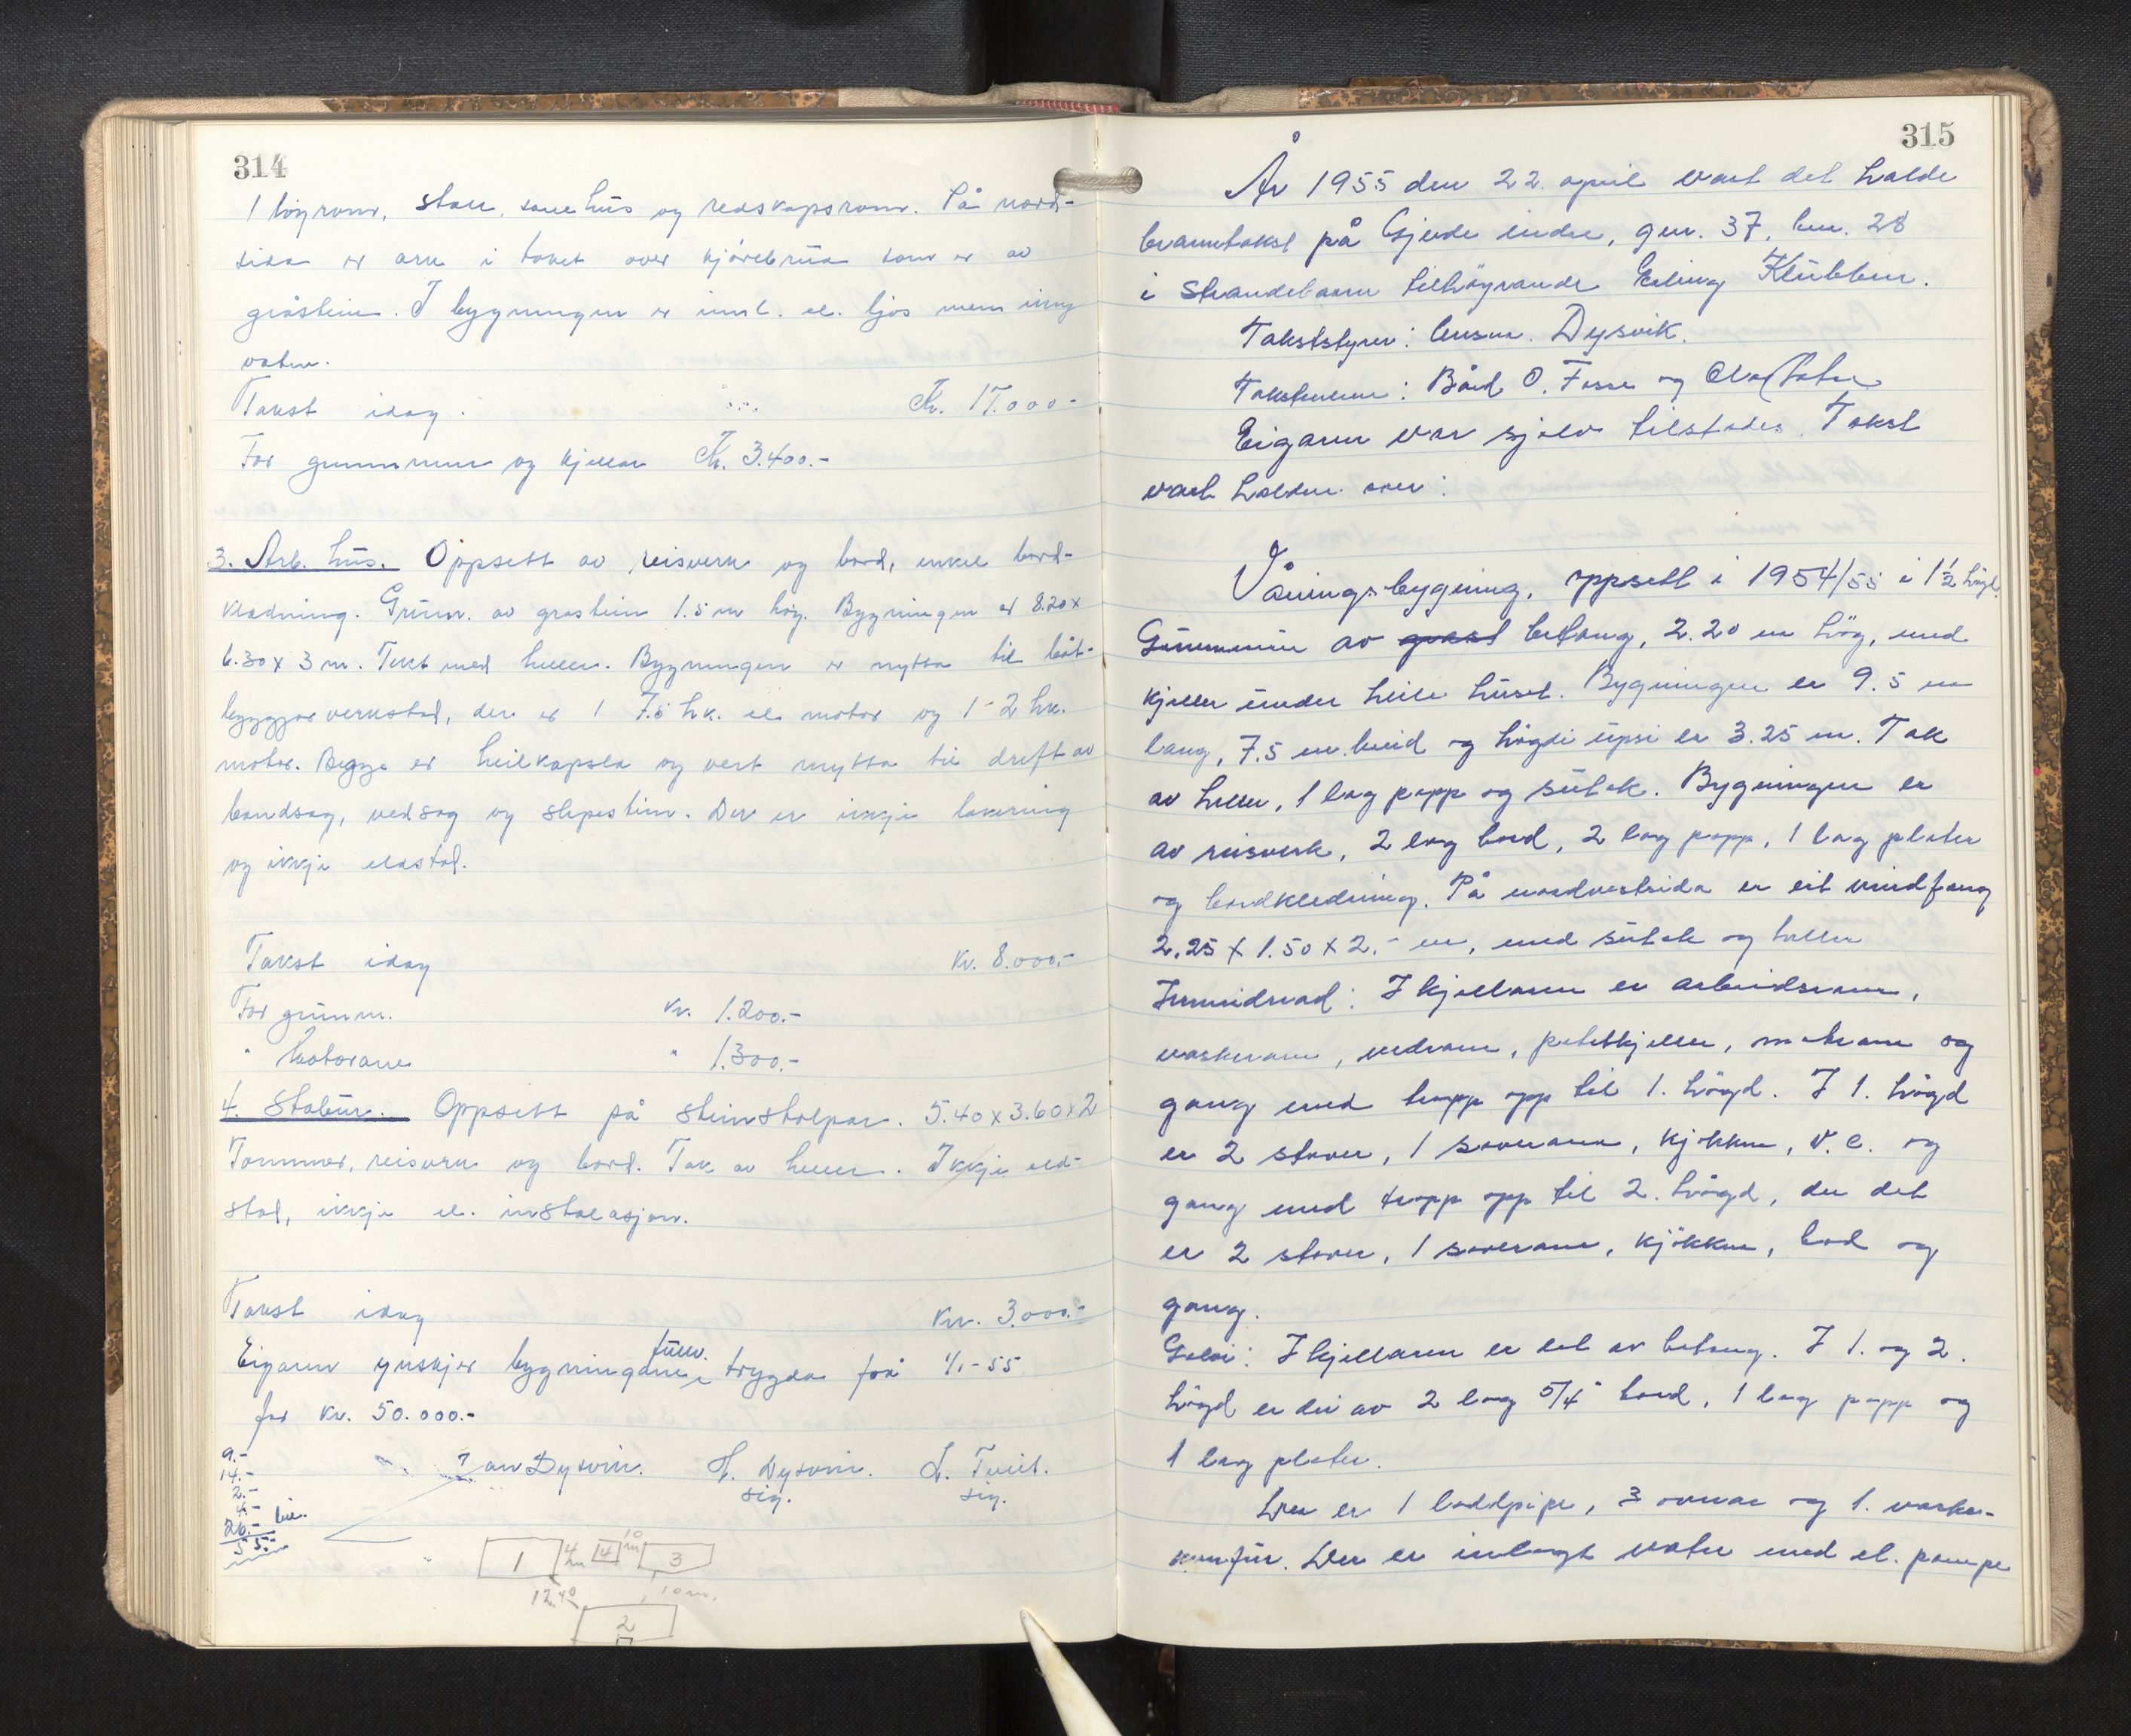 314
1 høyrom, stall, sauehus og redskapsrom. På nord-
sida er ark i taket over kjørebrua som er av
gråstein. I bygningen er innl. el. ljos men ikkje
vatn.
Takst idag. Kr. 17.000-
For grunnmur og kjellar Kr. 3.400.-
3. Arb. hus. Oppsett av reisverk og bord, enkel bord-
kledning. Grunn. av gråstein 1.5 m høg. Bygningen er 8.20 x
6.30 x 3 m. Tekt med heller. Bygningen er nytta til båt-
byggjarverkstad, der er 1 7.5 hk. el. motor og 1 - 2 hk.
motor. Begge er heilkapsla og vert nytta til drift av
bandsag, vedsag og slipestein. Der er ikkje lakering
og ikkje eldstad.
Takst idag Kr. 8.000.-
For grunnm. Kr. 1.200.-
" Motorane " 1.300.-
4. Stabur. Oppsett på steinstolpar. 5.40 x 3.60 x 2
Tømmer, reisverk og bord. Tak av heller. Ikkje eld-
stad, ikkje el. installasjon.
Takst idag Kr. 3.000.-
Eigaren ynskjer bygningane trygda frå 1/1-55
for Kr. 50.000.-
9.-
14.-
2.-
4.-
26.-
55.-
Jan Dysvik. H. Dysvik. L. Tveit.
sig. sig.
1 4 m 4 10 m 3
12.40 10 m.
2
315
År 1955 den 22. april vart det halde
branntakst på Gjerde indre, gnr. 37, bnr. 28
i Strandebarm tilhøyrande Erling Klubben.
Takststyrer: lensm. Dysvik.
Takstmenn: Bård O. Fosse og
Eigaren var sjølv tilstades. Takst
vart halden over:
Våningsbygning, oppsett i 1954/55 i 1½ høgd.
Grunnmur av betong, 2.20 m høg, med
kjeller under heile huset. Bygningen er 9.5 m
lang, 7.5 m. breid og høgdi upsi er 3.25 m. Tak
av heller, 1 lag papp og sutak. Bygningen er
av reisverk, 2 lag bord, 2 lag papp, 1 lag plater
og bordkledning. På nordvestsida er eit vindfang
2.25 x 1.50 x 2.- m, med sutak og heller
Innreidnad: I kjellaren er arbeidsrom,
vaskerom, vedrom, potetkjeller, matrom og
gang med trapp opp til 1. høgd. I 1. høgd
er 2 stover, 1 soverom, kjøkken, V.C. og
gang med trapp opp til 2. høgd, der det
er 2 stover, 1 soverom, kjøkken, bod og
gang.
Golvi: I kjellaren er det av betong. I 1. og 2.
høgd er dei av 2 lag 5/4" bord, 1 lag papp og
1 lag plater.
Der er 1 loddpipe, 3 ovnar og 1. vaske-
komfür. Der er innlagt vatn med el. pumpe